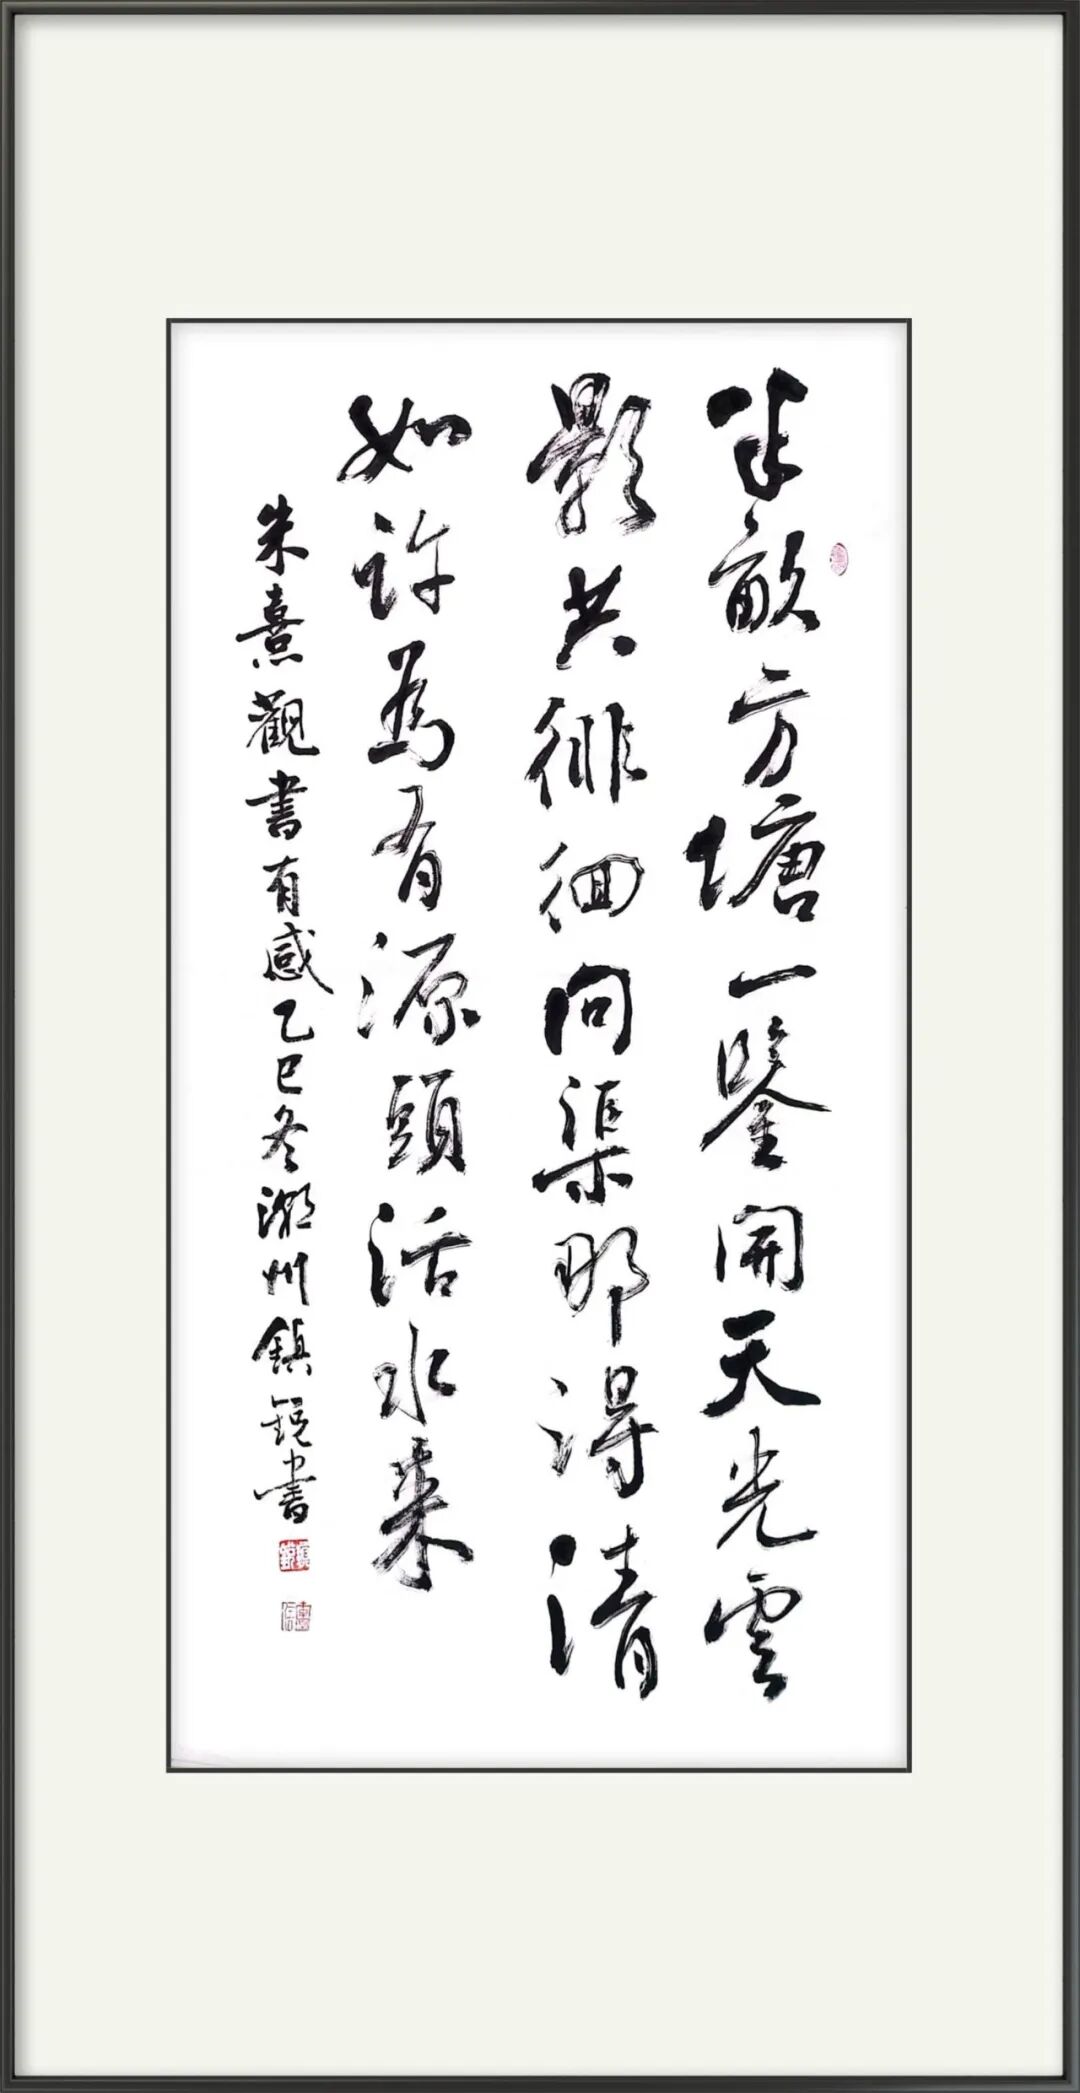 半畝方塘一鑒開天光雲
影共徘徊問渠那得清
如許為有源頭活水来
朱熹觀書有感乙巳冬潮州鎮锐書